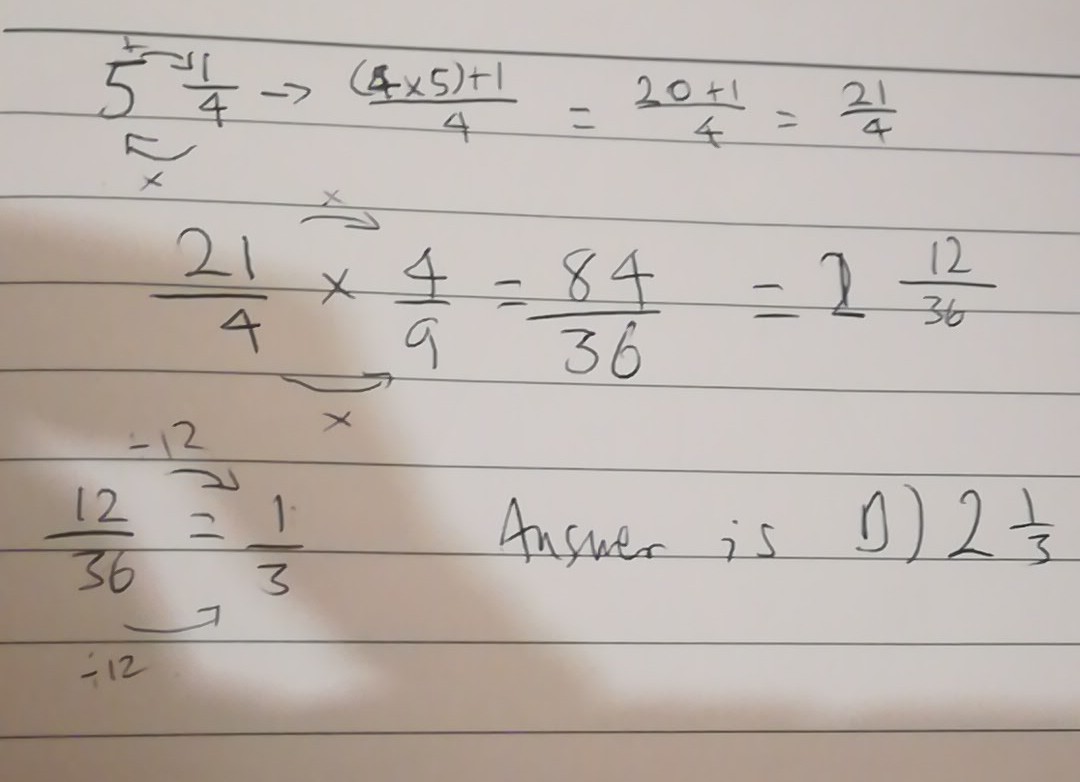 5 1/4 → (4×5)+1/4 = 20+1/4 = 21/4
21/4 × 4/9 = 84/36 = 2 12/36
12/36 = 1/3
÷12
÷12
Answer is D) 2 1/3